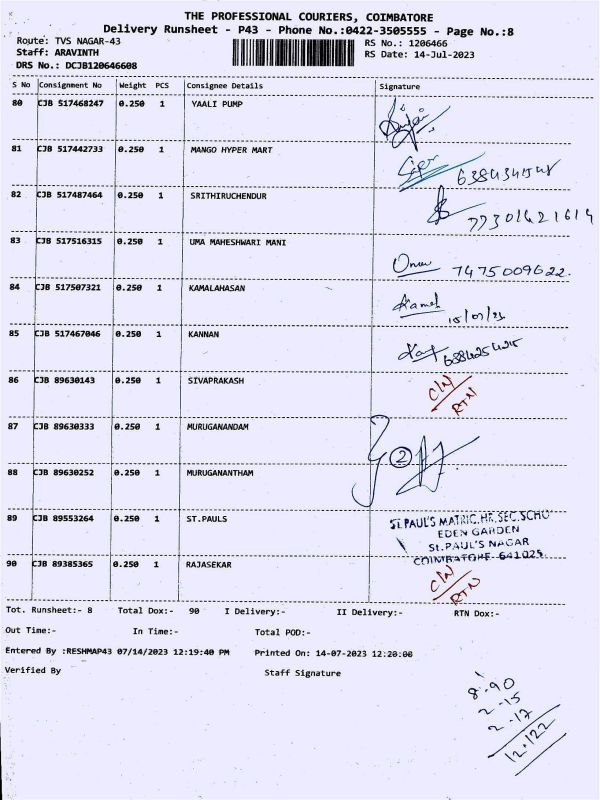 THE PROFESSIONAL COURIERS, COIMBATORE
Delivery Runsheet - P43 - Phone No.:0422-3505555 - Page No.:8
Route: TVS NAGAR-43 RS No.: 1206466
Staff: ARAVINTH RS Date: 14-Jul-2023
DRS No.: DCJB120646608
S No Consignment No Weight PCS Consignee Details Signature
80 CJB 517468247 0.250 1 YAALI PUMP
81 CJB 517442733 0.250 1 MANGO HYPER MART
82 CJB 517487464 0.250 1 SRITHIRUCHENDUR
83 CJB 517516315 0.250 1 UMA MAHESHWARI MANI 7475009622.
84 CJB 517507321 0.250 1 KAMALAHASAN Kamal
85 CJB 517467046 0.250 1 KANNAN
86 CJB 89630143 0.250 1 SIVAPRAKASH C/N
RTN
87 CJB 89630333 0.250 1 MURUGANANDAM
2
88 CJB 89630252 0.250 1 MURUGANANTHAM
89 CJB 89553264 0.250 1 ST.PAULS ST.PAUL'S MATRIC.HR.SEC.SCHO
EDEN GARDEN
St.PAUL'S NAGAR
COIMBATORE-641025.
90 CJB 89385365 0.250 1 RAJASEKAR C/N
RTN
Tot. Runsheet:- 8 Total Dox:- 90 I Delivery:- II Delivery:- RTN Dox:-
Out Time:- In Time:- Total POD:-
Entered By :RESHMAP43 07/14/2023 12:19:40 PM Printed On: 14-07-2023 12:20:00
Verified By Staff Signature
8-90
2-15
2-17
12-122